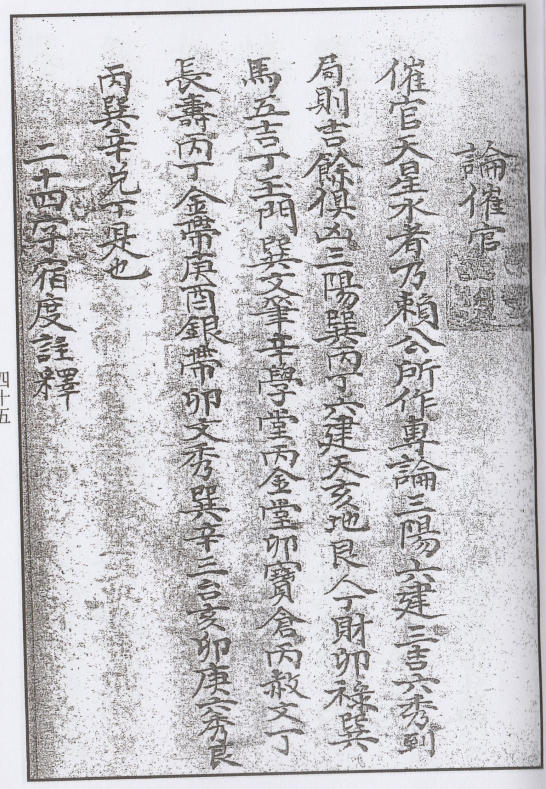 論催官
催官天星水者乃賴公所作專論三陽六建三吉六秀到
局則吉餘俱凶三陽巽丙丁六建天亥地艮人丁財卯祿巽
馬五吉丁玉門巽文筆辛學堂丙金堂卯寶倉丙赦文丁
長壽丙丁金帶庚酉銀帶卯文秀巽辛三台亥卯庚六秀艮
丙巽辛兌丁是也
二十四字宿度註釋
四十五